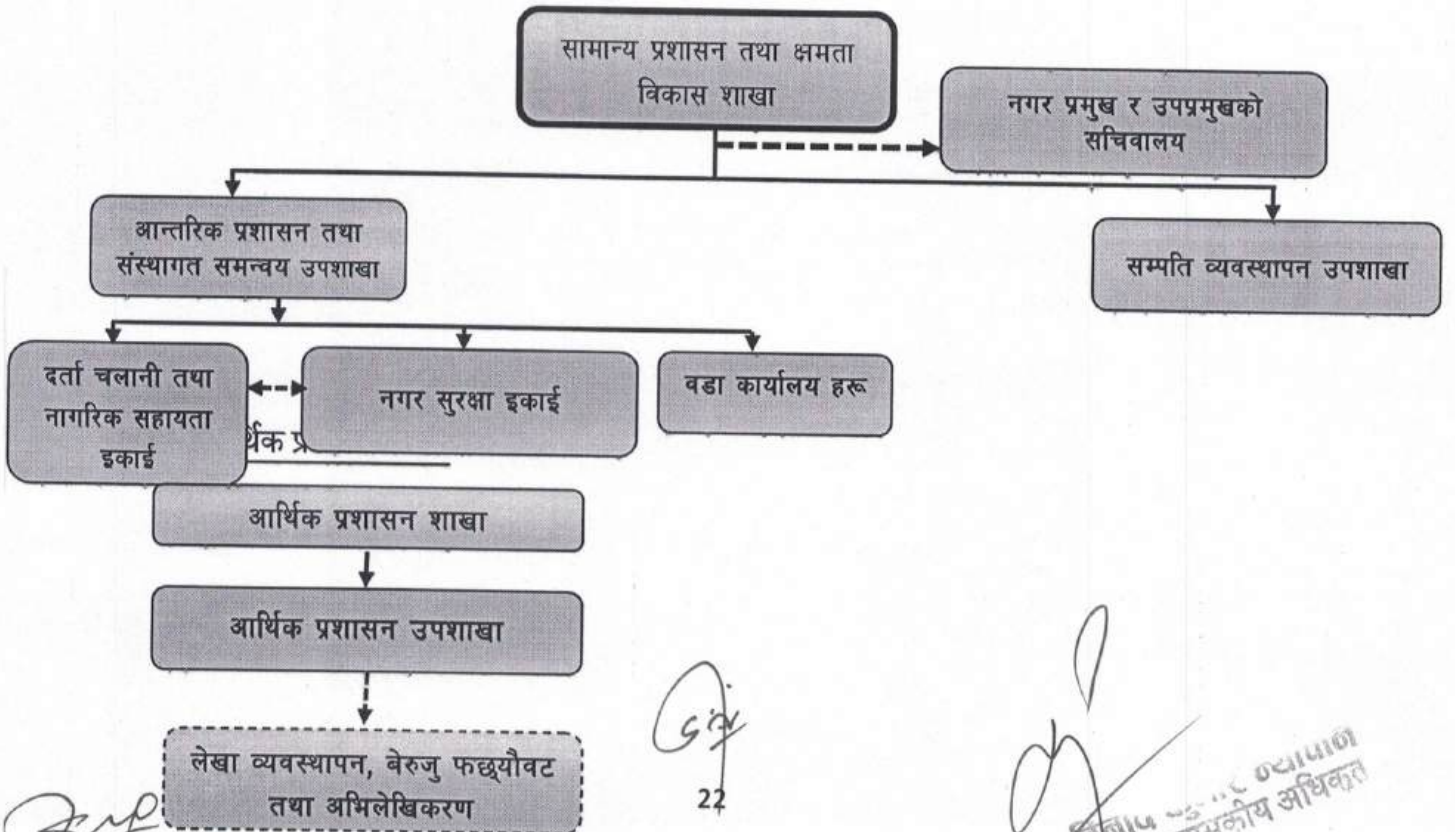 सामान्य प्रशासन तथा क्षमता
विकास शाखा
नगर प्रमुख र उपप्रमुखको
सचिवालय
आन्तरिक प्रशासन तथा
संस्थागत समन्वय उपशाखा
सम्पति व्यवस्थापन उपशाखा
दर्ता चलानी तथा
नागरिक सहायता
इकाई
नगर सुरक्षा इकाई
वडा कार्यालय हरू
र्थिक प्र
आर्थिक प्रशासन शाखा
आर्थिक प्रशासन उपशाखा
लेखा व्यवस्थापन, बेरुजु फछ्यौवट
तथा अभिलेखिकरण
22
अधिकृत